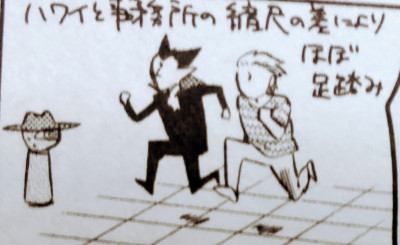 ハワイと事務所の縮尺の差により
ほぼ
足踏み